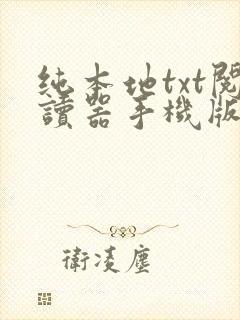 純本地txt閱
讀器手機版
衛凌塵